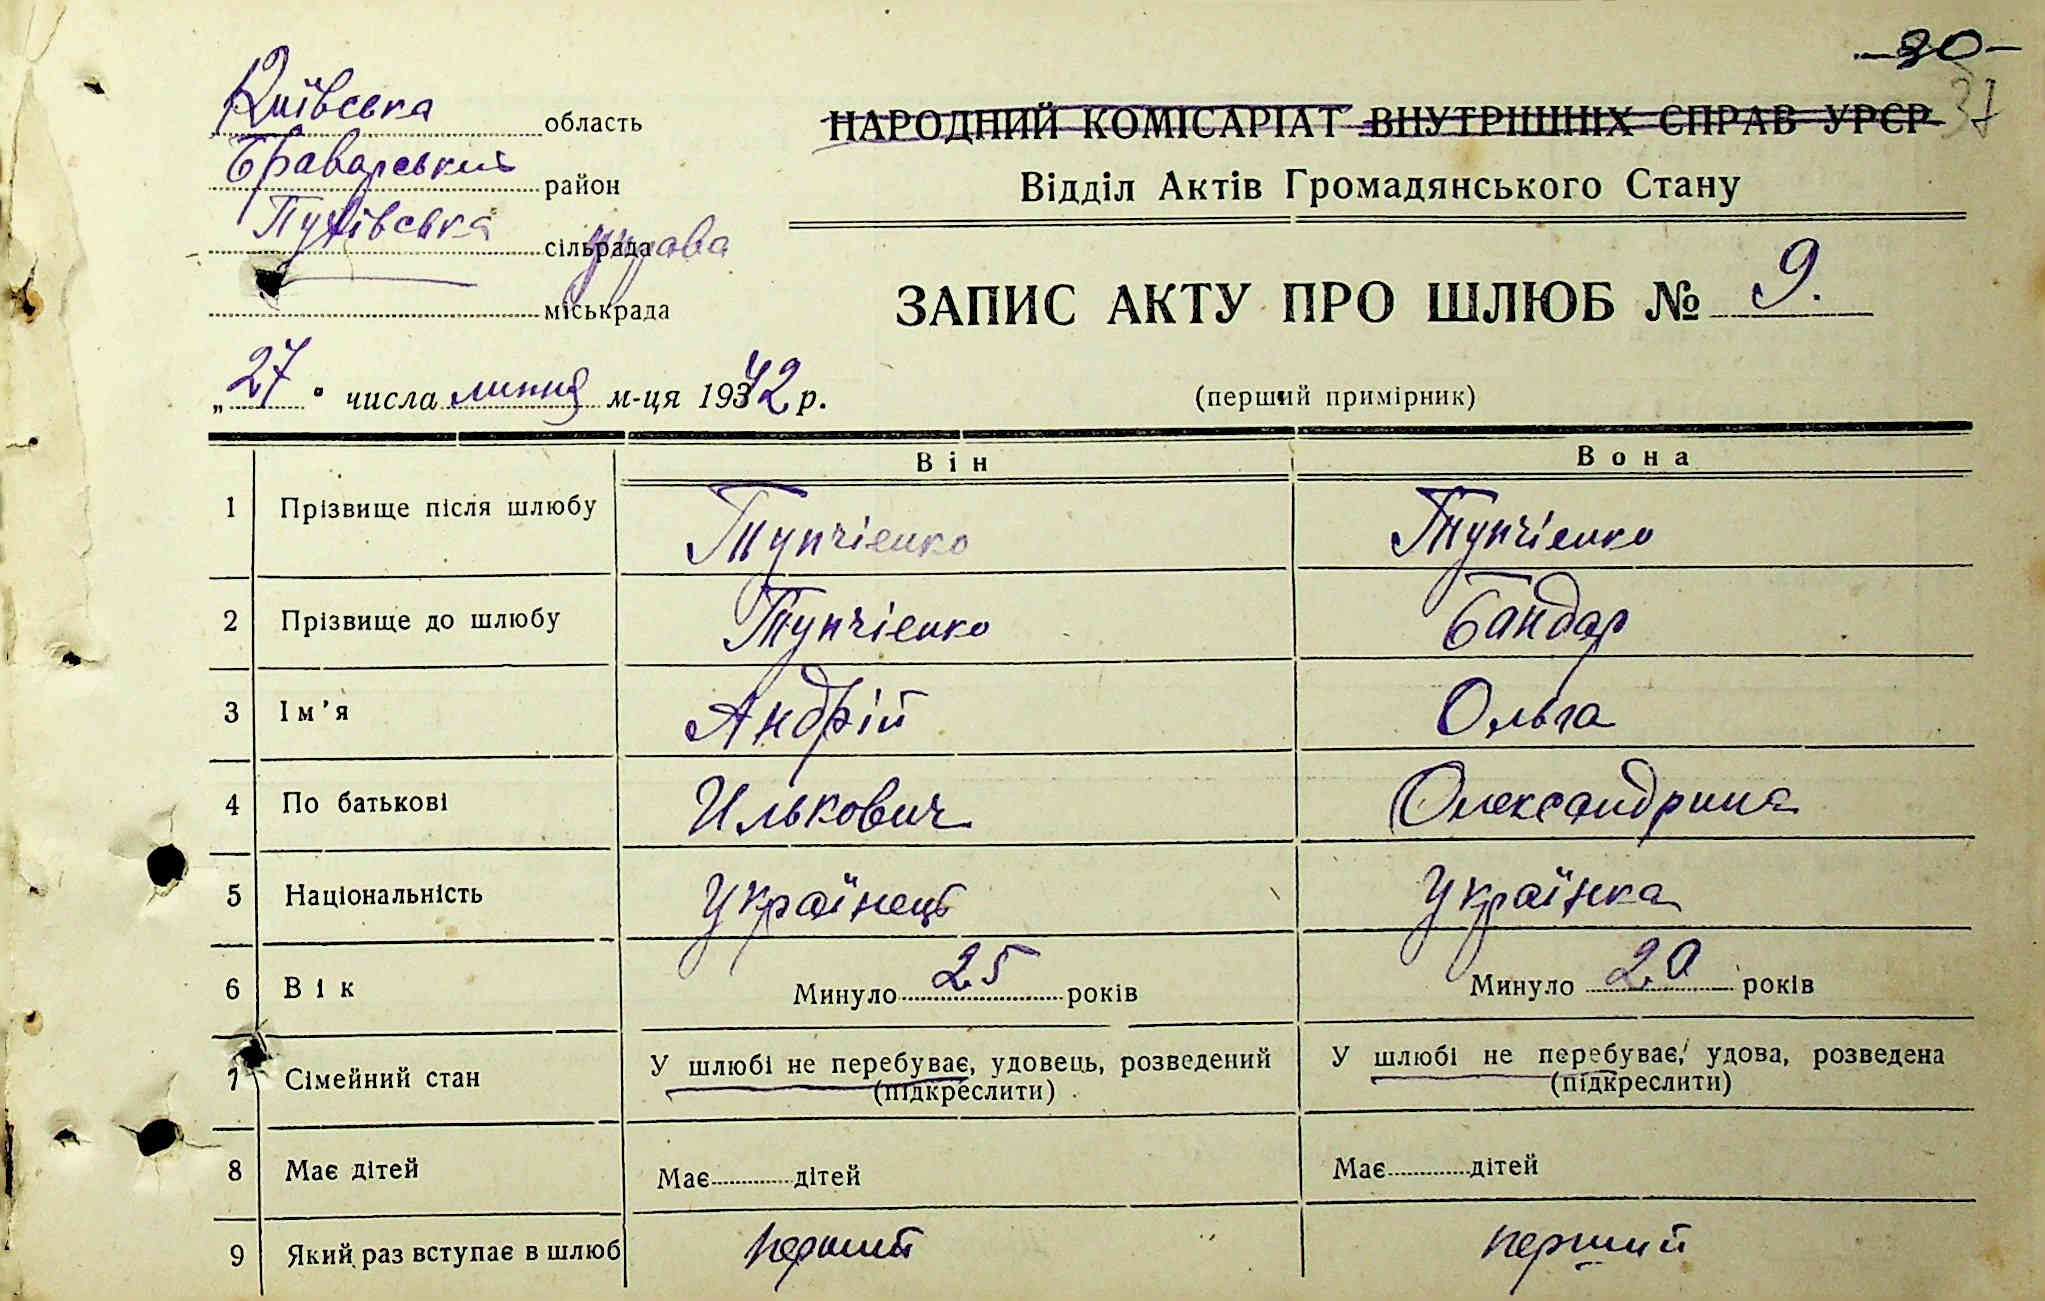 -30-
37
Київська область
НАРОДНИЙ КОМІСАРІАТ ВНУТРІШНІХ СПРАВ УРСР
Браварський район
Відділ Актів Громадянського Стану
Пухівська сільрада управа
міськрада
ЗАПИС АКТУ ПРО ШЛЮБ № 9.
„27" числа липня м-ця 1942 р.
(перший примірник)
Він Вона
1 Прізвище після шлюбу Тупчіенко Тупчіенко
2 Прізвище до шлюбу Тупчіенко Бандар
3 Ім'я Андрій Ольга
4 По батькові Илькович Олександрина
5 Національність Українець Українка
6 Вік Минуло 25 років Минуло 20 років
7 Сімейний стан У шлюбі не перебуває, удовець, розведений У шлюбі не перебуває, удова, розведена
(підкреслити) (підкреслити)
8 Має дітей Має дітей Має дітей
9 Який раз вступає в шлюб перший перший